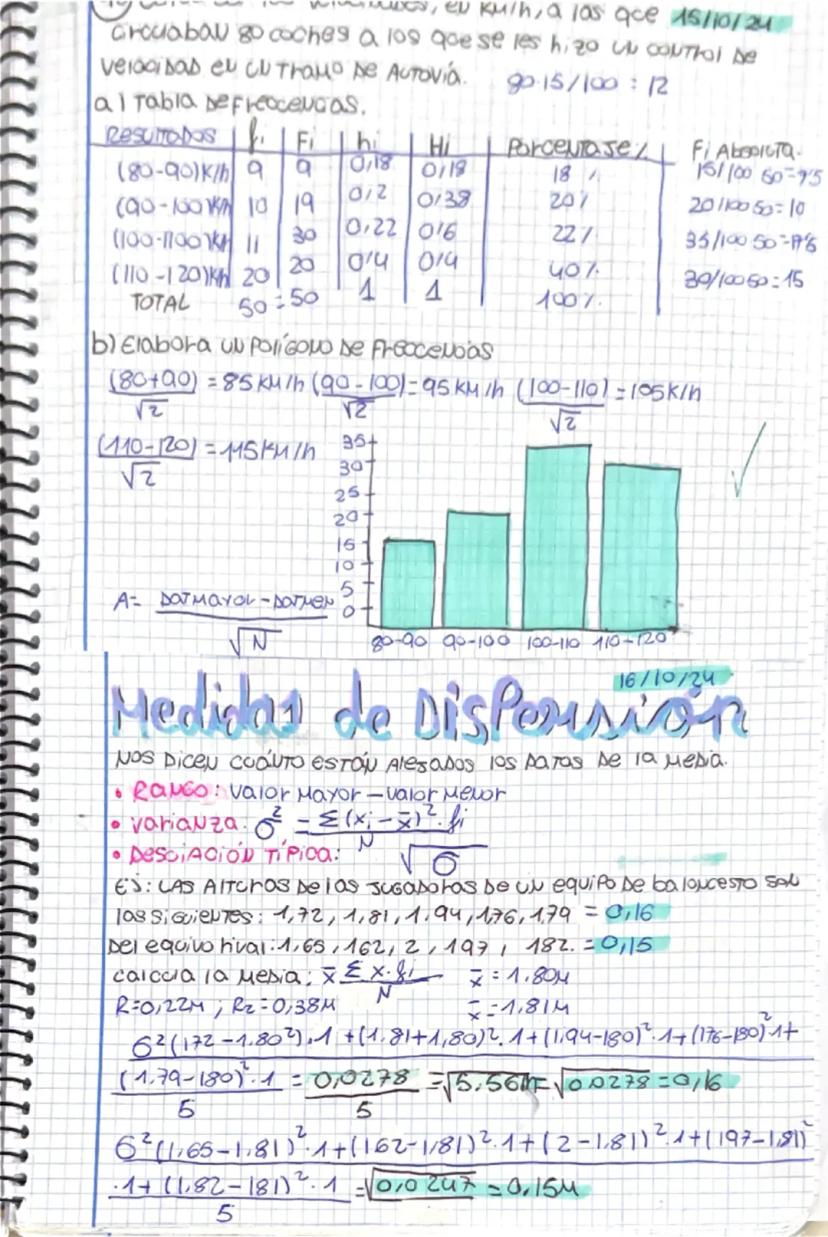 velocidades, en km/h, a las que 15/10/24
circulaban 80 coches a los que se les hizo un control de
velocidad en un tramo de autovía. 80·15/100 = 12
a) Tabla de frecuencias.
Resultados | fi | Fi | hi | Hi | Porcentaje % | Fi Absoluta.
(80-90)K/h 9 9 0,18 0,18 18% 15/100 50=7'5
(90-100)K/h 10 19 0,2 0,38 20% 20/100 50=10
(100-1100)K/h 11 30 0,22 0,6 22% 35/100 50=17'5
(110-120)K/h 20 20 0,4 0,4 40% 30/100 50=15
TOTAL 50=50 1 1 100%
b) Elabora un polígono de frecuencias
(80+90)/√2 = 85 km/h (90-100)/√2 = 95 km/h (100-110)/√2 = 105 K/h
(110-120)/√2 = 115 km/h
35
30
25
20
15
10
5
0
80-90 90-100 100-110 110-120
A= Dat mayor - Dat men / √N
16/10/24
Medidas de Dispersión
Nos dicen cuánto están alejados los datos de la media.
• Rango: valor mayor – valor menor
• Varianza: σ² = Σ(xi - x̄)²·fi / N
• Desciación típica: √σ
Ej: Las alturas de las jugadoras de un equipo de baloncesto son
las siguientes: 1,72, 1,81, 1,94, 1,76, 1,79 = 0,16
Del equivo rival: 1,65, 162, 2, 197, 182. = 0,15
calcula la media: x̄ Σ x·fi / N x̄ = 1.80M
R=0,22M ; R2=0,38M x̄ = 1,81M
6²(172-1.80²).1 + (1.81+1,80)².1 + (1,94-180)².1 + (176-180)².1 +
(1.79-180)².1 / 5 = 0,0278 / 5 = √5.56 = √0.0278 = 0,16
6²(1,65-1,81)²·1 + (162-1,81)²·1 + (2-1,81)².1 + (197-1,81)²
·1 + (1,82-181)²·1 / 5 = √0,0247 = 0,15M